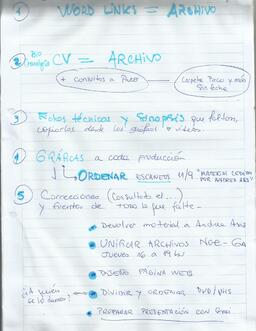 ① WORD LINKS = ARCHIVO
② Bio CV = ARCHIVO
+ consultos a Paco — Carpeta Paco y más
sin fecha
③ Fichas técnicas y Sinopsis que faltan,
copiarlas desde las gráficas y videos.
④ GRÁFICAS a cada producción
ORDENAR ESCANEOS 11/9 "MATERIAL CEDIDO
POR ANDREA ARS"
⑤ Correcciones (Consultado el ...)
y fuentes de todo lo que falte.
• Devolver material a Andrea Ars
• UNIFICAR ARCHIVOS NOE - GA
JUEVES 16 a 19 hs
• DISEÑO PÁGINA WEB
¿A quien se lo damos?
• DIVIDIR y ORDENAR DVD/VHS
• PREPARAR PRESENTACIÓN CON